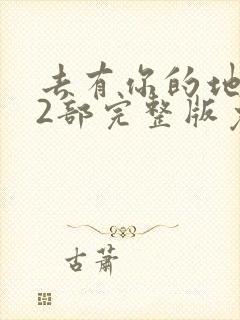 去有你的地
2部完整版
古萧